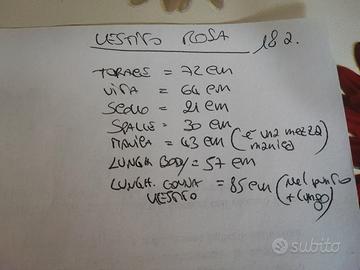 VESTITO ROSA 182.
TORACE = 72 cm
VITA = 64 cm
SENO = 21 cm
SPALLE = 30 cm
MANICA = 43 cm (è una mezza manica)
LUNGH BODY = 57 cm
LUNGH. GONNA = 85 cm (nel punto
VESTITO + lungo)
subito